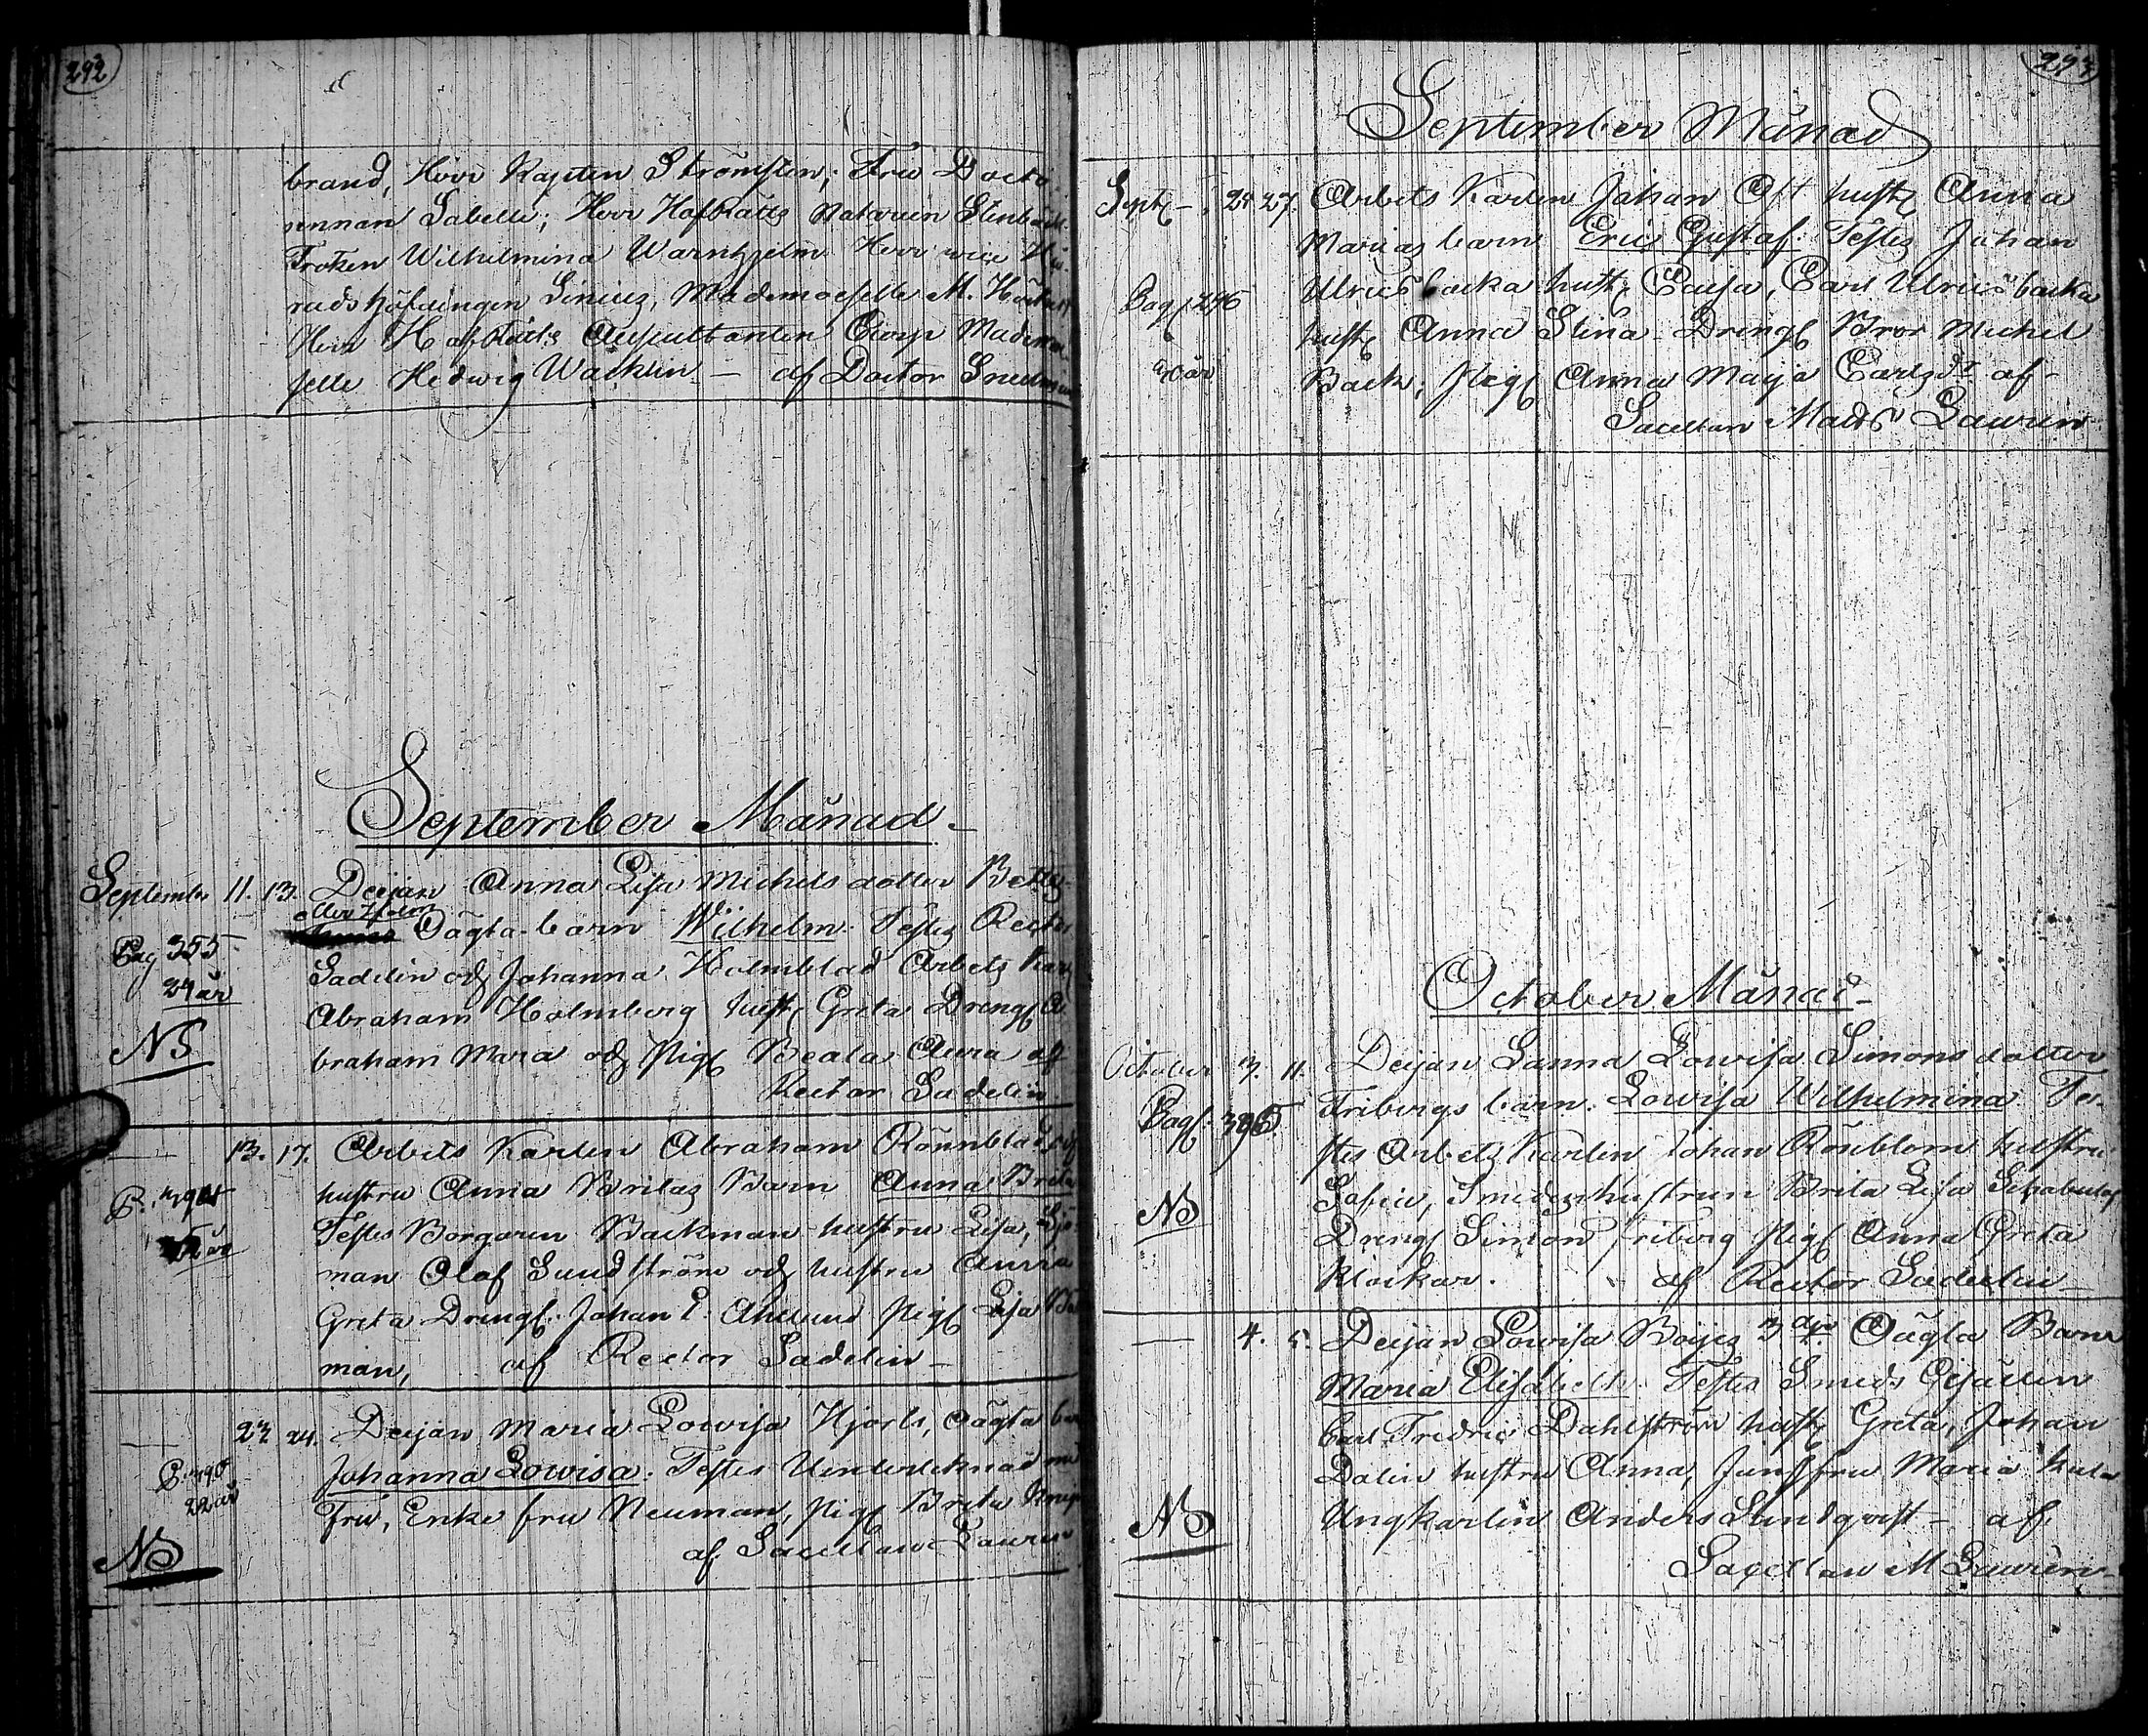 292
brand, Herr Kapten Strömsten; Fru Docto
rinnan Sabelli; Herr HofRätts Notarien Stenbäck
Fröken Wilhelmina Warnhjelm Herr vice Hä-
radshöfdingen Linius, Mademoeselle M.
Herr HofRätts Auscultanten Mademoi
selle Hedwig Wachlin – af Doctor Snellman
September Månad
September 11. 13. Deijan Anna Lisa Michelsdotter
Oägta barn Wilhelm. Testes Rector
Pag 355
Sadelin och Johanna Holmblad Arbets Karl
24 år
Abraham Holmberg hust. Greta Dreng A
NB
braham Mara och Pig Beata Aura af
Rector Sadelin
— 13. 17. Arbets Karlen Abraham Rönnblad och
hustru Anna Britas Barn Anna Brita
Testes Borgaren Backman hustru Lisa, Sjö
man Olof Sundström och hustru Anna
Greta Dreng. Johan E. Ahlund Pig Lisa
man, af Rector Sadelin
— 23 24. Deijan Maria Lowisa Hjorts, Oägta barn
Johanna Lowisa. Testes Undertecknad med
P. 390
22 år
Fru, Enke fru Neuman, Pig Brita
NB
af Sacellan Laurin
293
September Månad
Sept – 24 27. Arbets Karlen Johan Ost hust Anna
Marias barn Eric Gustaf. Testes Johan
Pag 246
Ulricsbacka hust. Caisa, Carl Ulricsbacka
hust Anna Stina Dreng Bror Michel
30 år
Back, Pig Anna Maija Carlsdr af
Sacellan Matts Laurin
October Månad
October 3. 11. Deijan Sanna Lowisa Simonsdotter
Fribergs barn. Lowisa Wilhelmina Te-
Pag. 395
stes Arbets Karlen Johan Rönblom hustru
Sofia, Smedgs hustrun Brita Lisa
NB
Dreng Simon Friberg Pig Anna Greta
Klockar. af Rector Sadelin
— 4. 5. Deijan Lowisa Boijes 3dje Oägta Barn
Maria Elisabeth. Testes Smeds Gesällen
Carl Fredric Dahlström hust Greta, Johan
Dalin hustru Anna, Jungfru Maria
NB
Ungkarlen Anders Sundqvist – af
Sacellan M Laurin